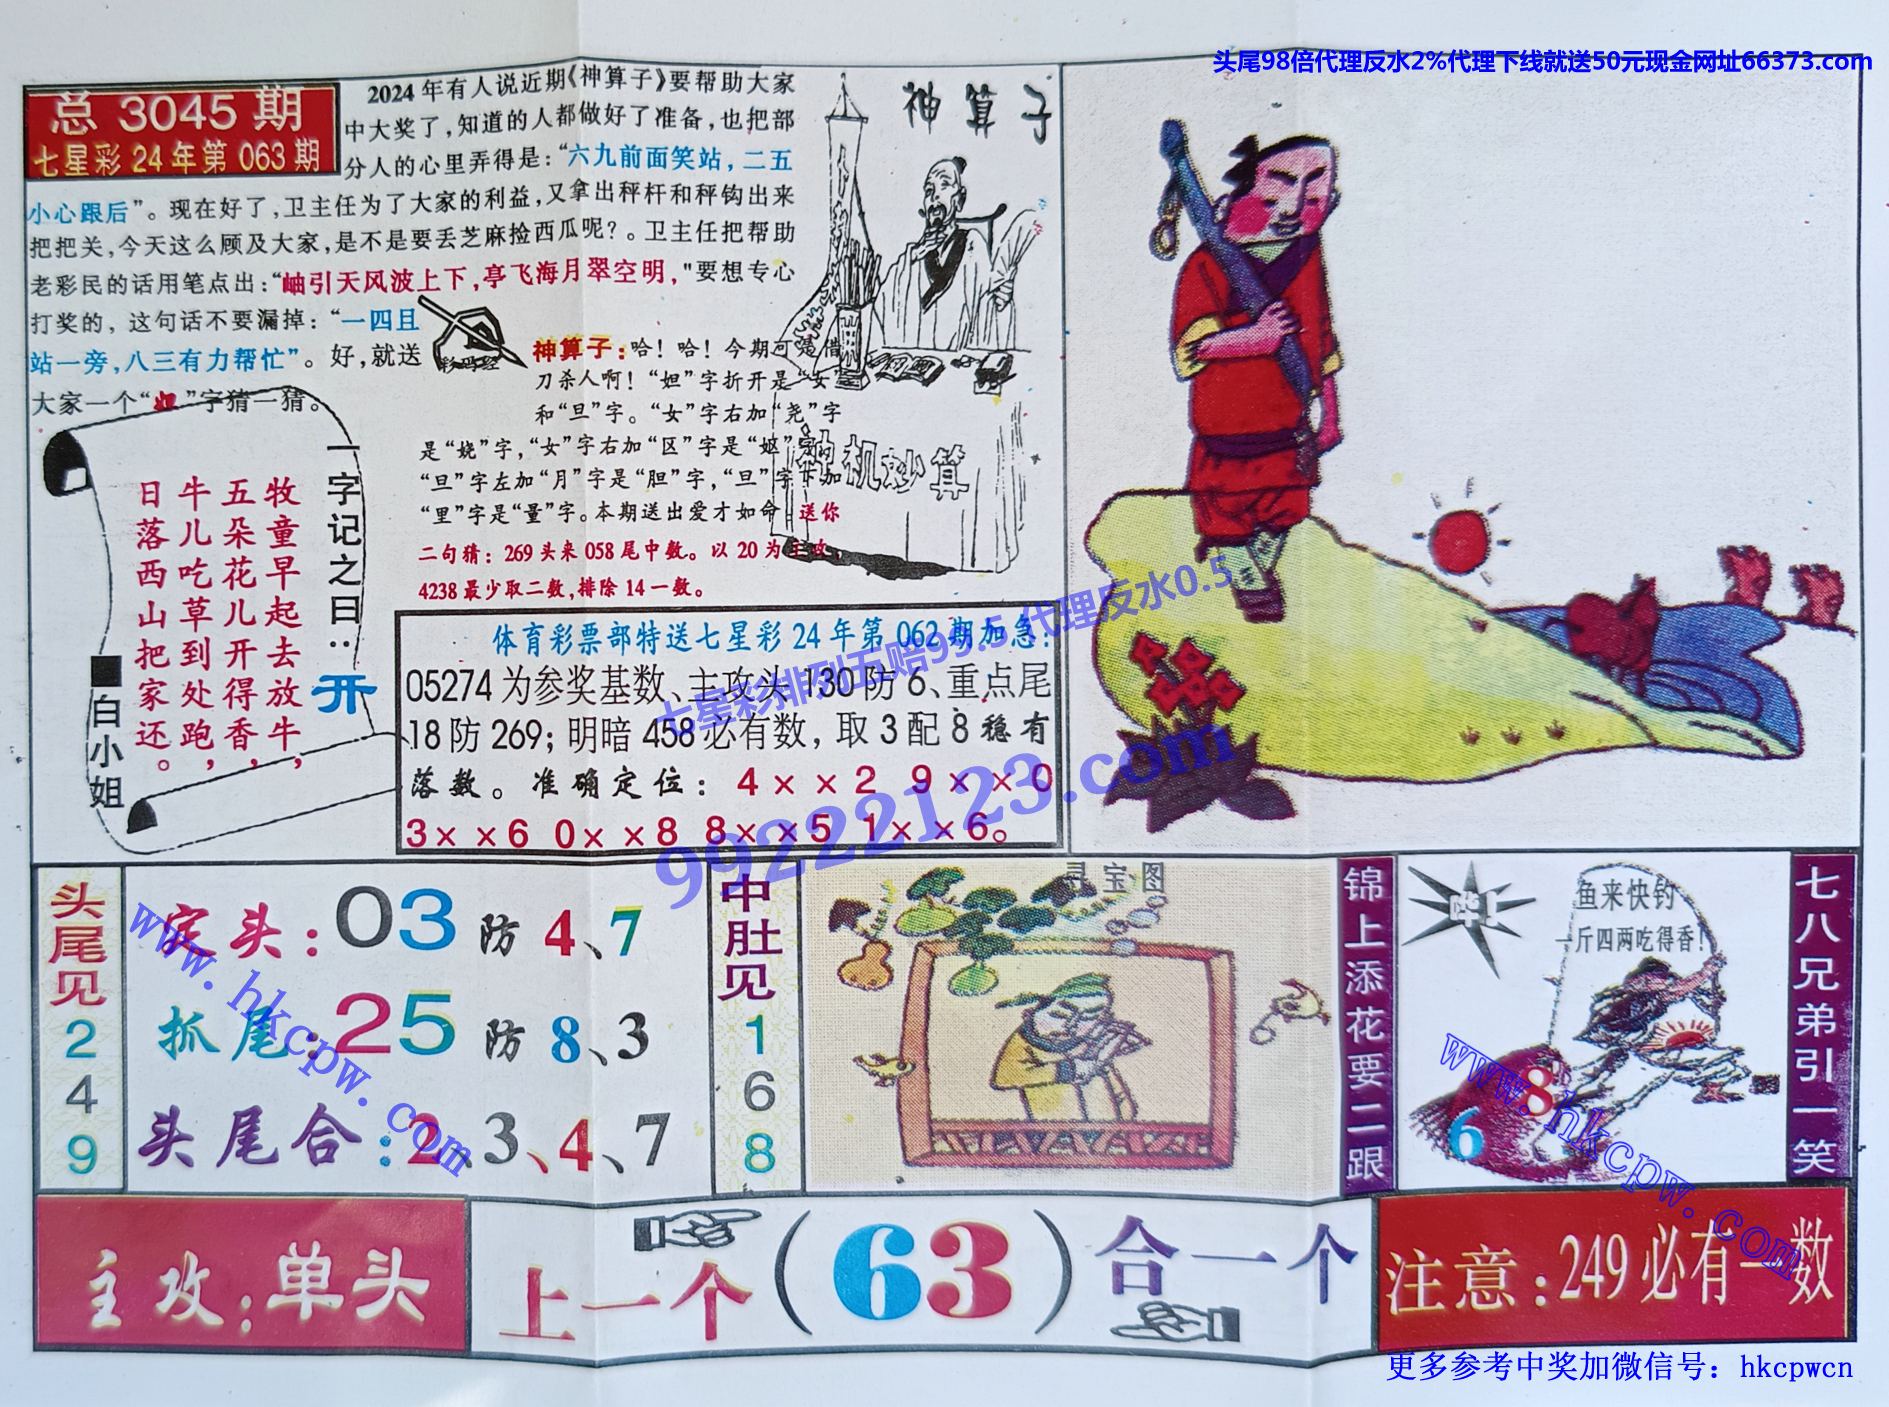 头尾98倍代理反水2%代理下线就送50元现金网址66373.com
总 3045 期
七星彩 24 年第 063 期
2024年有人说近期《神算子》要帮助大家
中大奖了，知道的人都做好了准备，也把部
分人的心里弄得是：“六九前面笑站，二五
小心跟后”。现在好了，卫主任为了大家的利益，又拿出秤杆和秤钩出来
把把关，今天这么顾及大家，是不是要丢芝麻捡西瓜呢？。卫主任把帮助
老彩民的话用笔点出：“岫引天风波上下，亭飞海月翠空明，"要想专心
打奖的，这句话不要漏掉：“一四且
站一旁，八三有力帮忙”。好，就送
大家一个“妲”字猜一猜。
彩码经
神算子
神机妙算
神算子：哈！哈！今期可是借
刀杀人啊！“妲”字折开是“女”
和“旦”字。“女”字右加“尧”字
是“娆”字，“女”字右加“区”字是“妪”字
“旦”字左加“月”字是“胆”字，“旦”字下加
“里”字是“量”字。本期送出爱才如命！送你
二句猜：269头来058尾中数。以20为主攻，
4238最少取二数，排除14一数。
一字记之曰：开
牧童早起去放牛，
五朵花儿开得香，
牛儿吃草到处跑，
日落西山把家还。
■白小姐
体育彩票部特送七星彩24年第062期加急：
05274为参奖基数、主攻头130防6、重点尾
18防269；明暗458必有数，取3配8稳有
落数。准确定位：4××2 9××0
3××6 0××8 8××5 1××6。
七星彩排列五赔99.5 代理反水0.5
99222123.com
头尾见249
定头：03防4、7
抓尾：25防8、3
头尾合：2、3、4、7
www.hkcpw.com
中肚见168
寻宝图
锦上添花要二跟
鱼来快钓
一斤四两吃得香！
8
6
www.hkcpw.com
七八兄弟引一笑
主攻：单头
上一个（63）合一个
注意：249必有一数
更多参考中奖加微信号：hkcpwcn